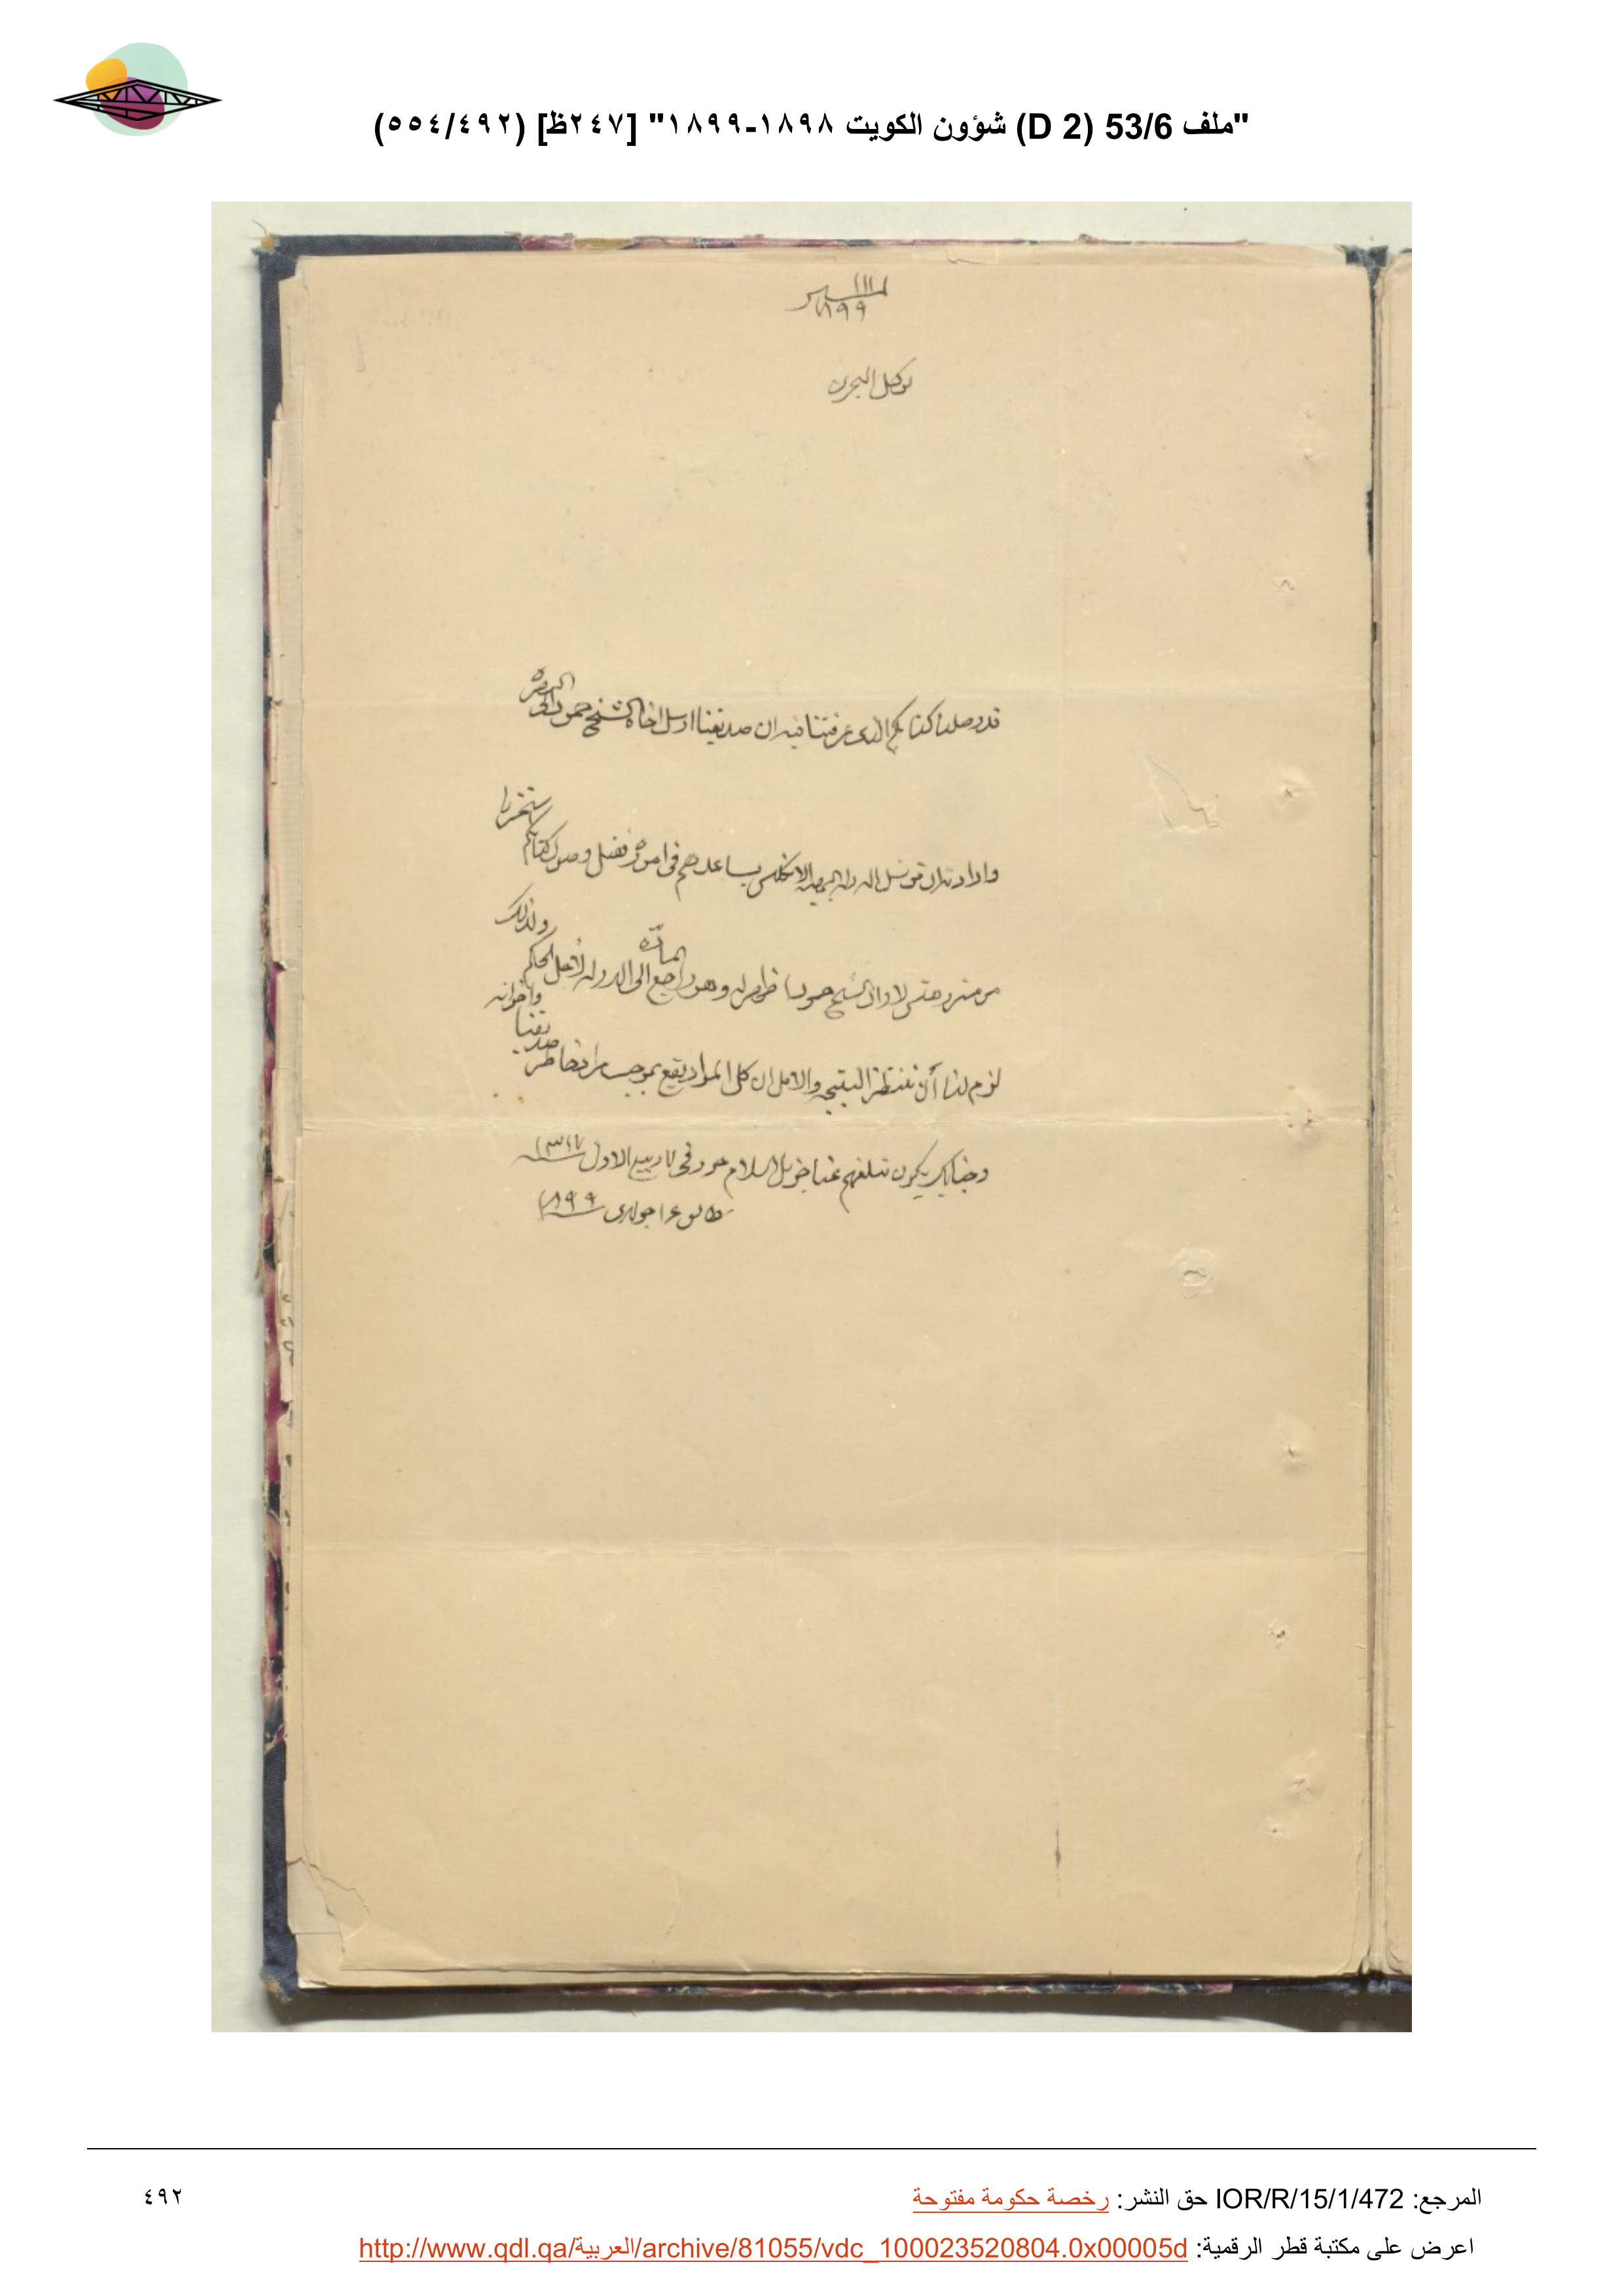 "ملف 53/6 (D 2) شؤون الكويت ١٨٩٨-١٨٩٩" [٢٤٧ظ] (٥٥٤/٤٩٢)
١٨٩٩
لوكيل البحرين
قد وصلنا كتابكم الذي عرفتنا فيه ان صديقنا ارسل اخاه الشيخ حمود الى البصره
واراد بان قونسل الدوله البهيه الانكليس يساعدهم في امره فقبل وصول كتابكم
الشيخ حمود وهو راجع الى الدوله لأجل المادّه ولذلك
لزم لنا أن ننتظر النتيجه والامل ان كل المواد يقع بموجب خاطر صديقنا واخوانه
وجنابك يكون تبلغهم عنا جزيل السلام حرر في ربيع الاول ١٣١٧
جولاي ١٨٩٩
المرجع: IOR/R/15/1/472 حق النشر: رخصة حكومة مفتوحة
٤٩٢
اعرض على مكتبة قطر الرقمية: http://www.qdl.qa/العربية/archive/81055/vdc_100023520804.0x00005d